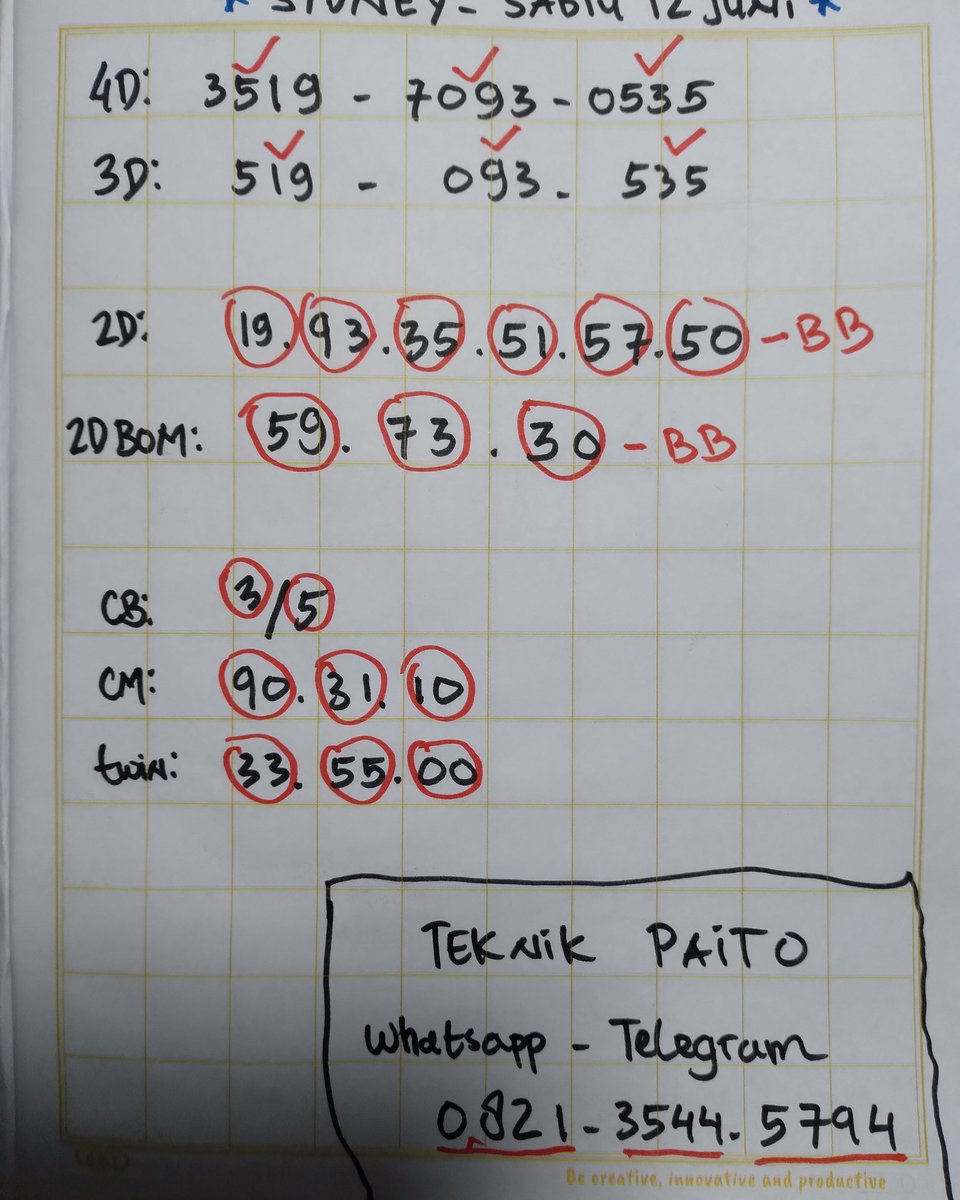 * SIDNEY - SABTU 12 JUNI *
4D: 3519 - 7093 - 0535
3D: 519 - 093 - 535
2D: 19. 93. 35. 51. 57. 50 - BB
2D BOM: 59. 73. 30 - BB
CB: 3/5
CM: 90. 31. 10
twin: 33. 55. 00
TEKNIK PAITO
Whatsapp - Telegram
0821 - 3544. 5794
Be creative, innovative and productive